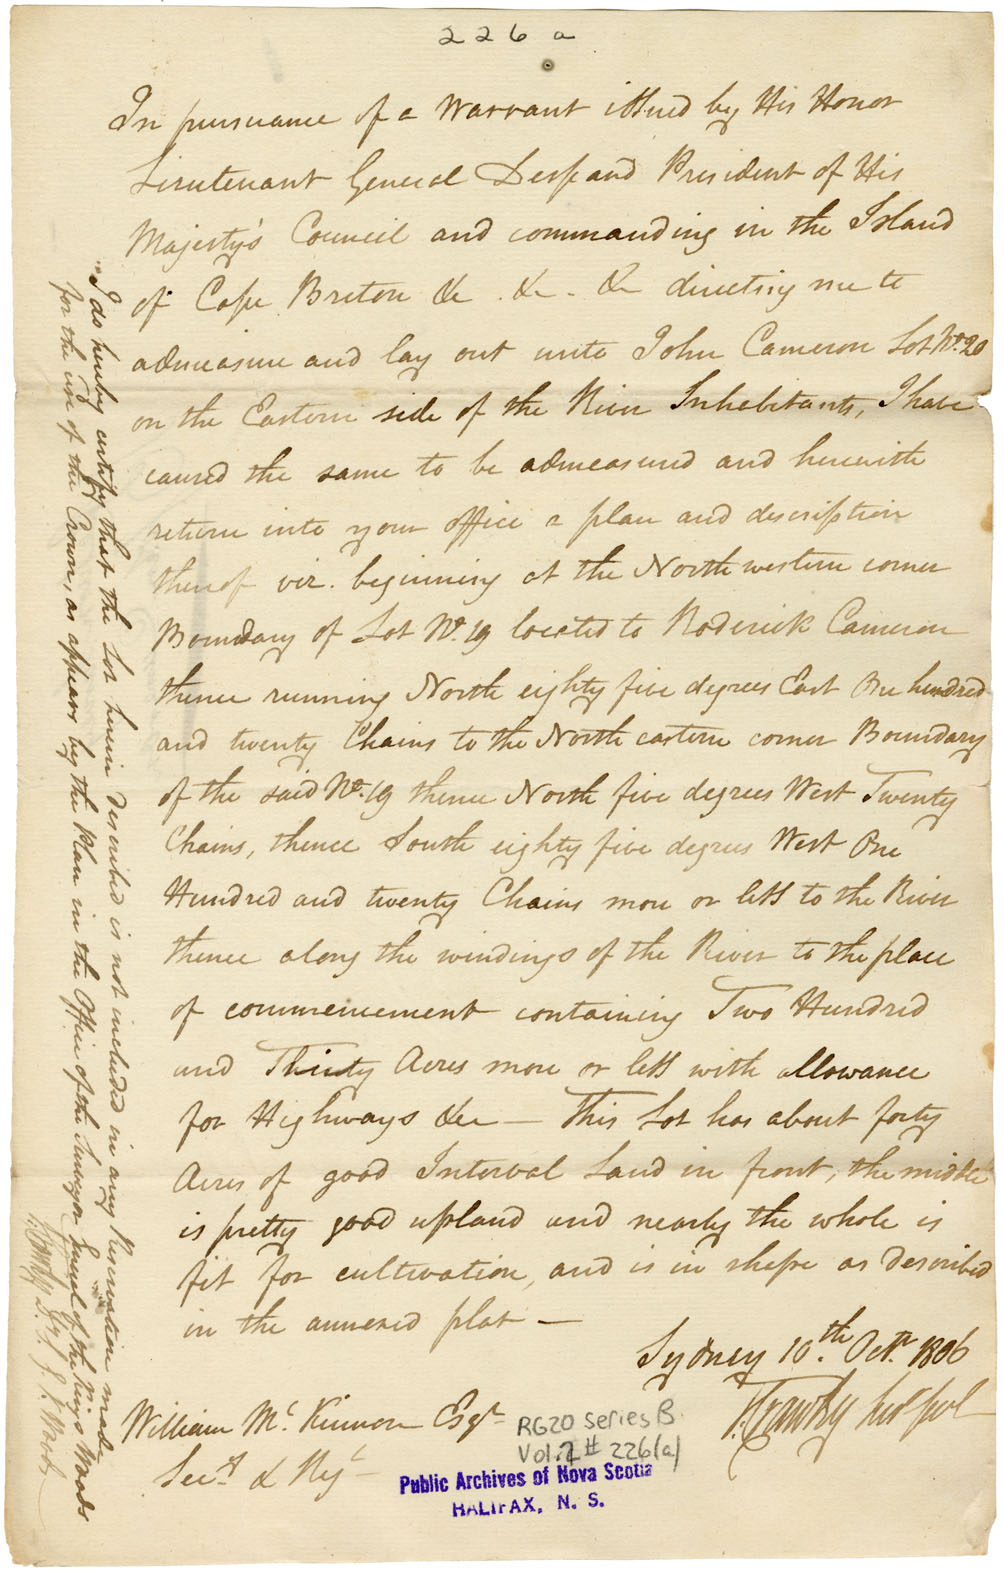 226 a
In pursuance of a Warrant issued by His Honor
Lieutenant General Despard President of His
Majesty's Council and commanding in the Island
of Cape Breton &c . &c - &c directing me to
admeasure and lay out unto John Cameron Lot No. 20
on the Eastern side of the River Inhabitants, I have
caused the same to be admeasured and herewith
return into your office a plan and description
thereof viz. beginning at the North western corner
Boundary of Lot No. 19 located to Roderick Cameron
thence running North eighty five degrees East One hundred
and twenty Chains to the North eastern corner Boundary
of the said No. 19 thence North five degrees West Twenty
Chains, thence South eighty five degrees West One
Hundred and twenty Chains more or less to the River
thence along the windings of the River to the place
of commencement containing Two Hundred
and Thirty Acres more or less with allowance
for Highways &c — This Lot has about forty
Acres of good Interval Land in front, the middle
is pretty good upland and nearly the whole is
fit for cultivation, and is in shape as described
in the annexed plat —
Sydney 10th. Octr. 1806
Crawley
William Mc Kinnon Esqr
Secy & Regr
RG20 Series B
Vol. 2 # 226(a)
Public Archives of Nova Scotia
HALIFAX, N. S.
I do hereby certify that the Lot herein described is not included in any Reservation made
for the use of the Crown, as appears by the Plan in the Office of the Surveyor General of the King's Woods
Crawley
Woods